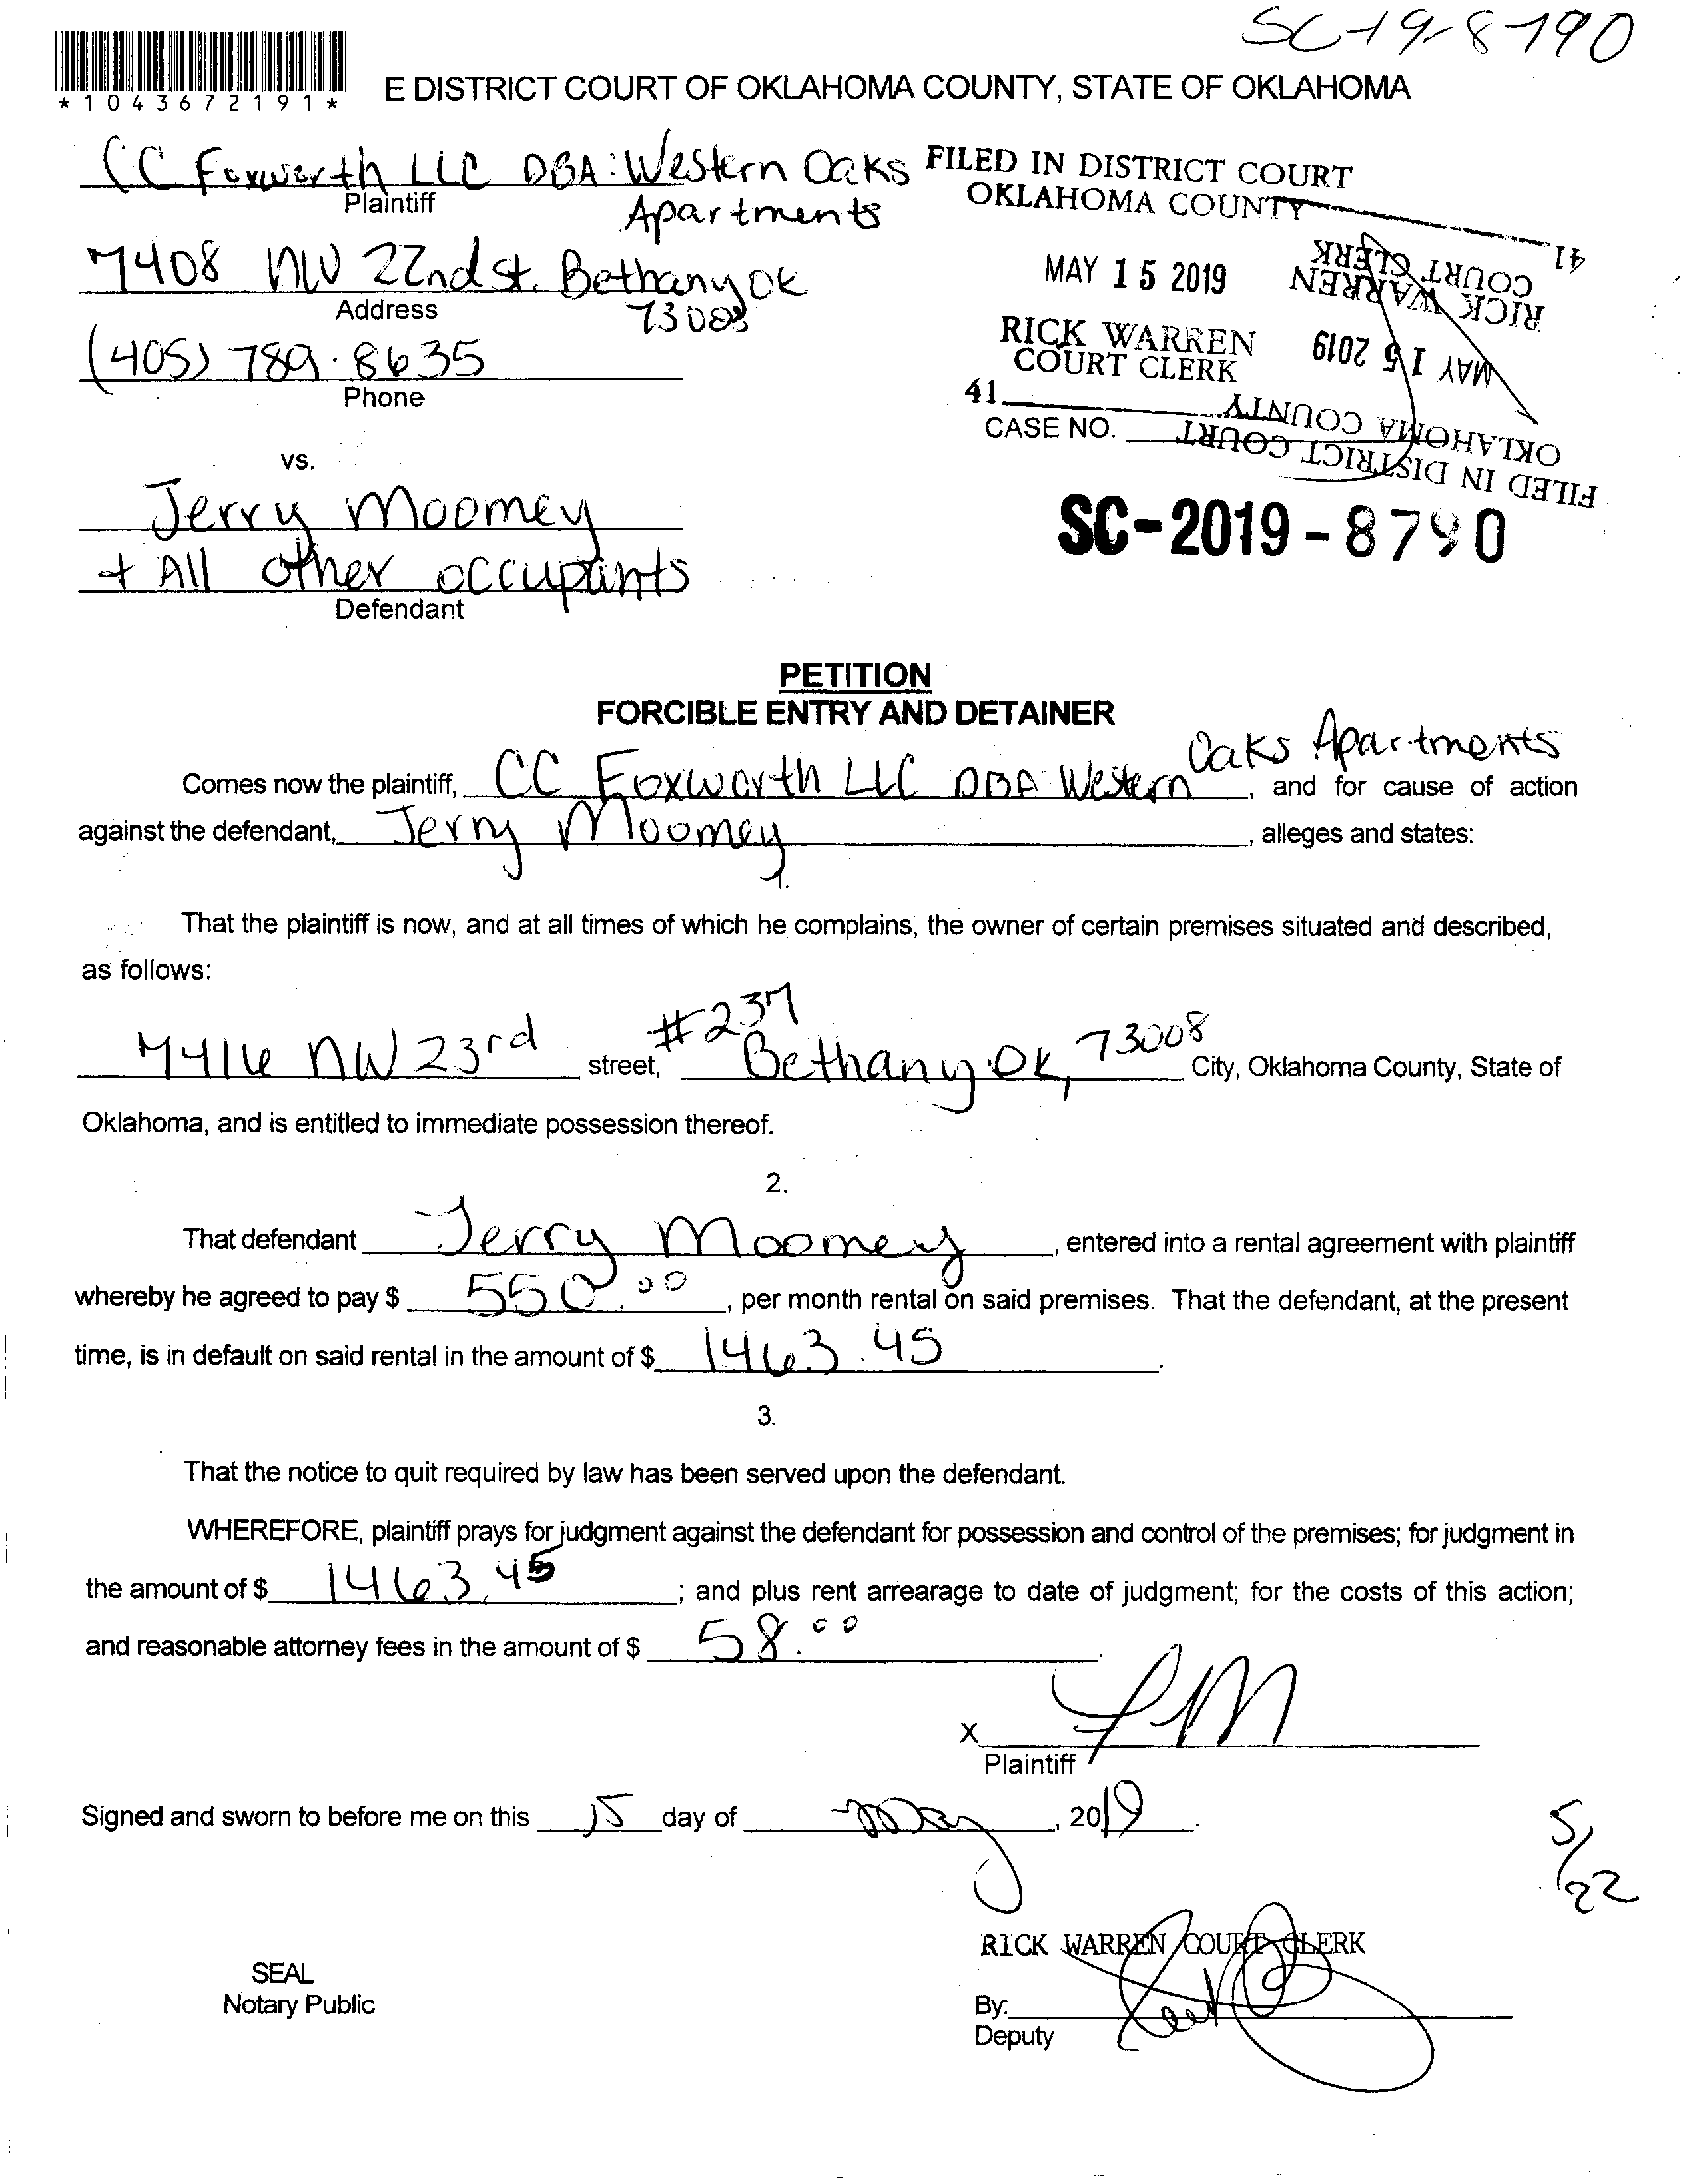 SC-19-8790
*1043672191*
E DISTRICT COURT OF OKLAHOMA COUNTY, STATE OF OKLAHOMA
CC Foxworth LLC DBA: Western Oaks
Plaintiff
Apartments
7408 NW 22nd St. Bethany OK
Address
73008
(405) 789-8635
Phone
FILED IN DISTRICT COURT
OKLAHOMA COUNTY
MAY 15 2019
RICK WARREN
COURT CLERK
41
FILED IN DISTRICT COURT
OKLAHOMA COUNTY
MAY 15 2019
RICK WARREN
COURT CLERK
41
CASE NO.
vs.
Jerry Moomey
+ All other occupants
Defendant
SC-2019-8790
PETITION
FORCIBLE ENTRY AND DETAINER
Comes now the plaintiff, CC Foxworth LLC DBA Western Oaks Apartments, and for cause of action
against the defendant, Jerry Moomey, alleges and states:
1.
That the plaintiff is now, and at all times of which he complains, the owner of certain premises situated and described,
as follows:
7416 NW 23rd street, #237 Bethany OK, 73008 City, Oklahoma County, State of
Oklahoma, and is entitled to immediate possession thereof.
2.
That defendant Jerry Moomey, entered into a rental agreement with plaintiff
whereby he agreed to pay $ 550.00, per month rental on said premises. That the defendant, at the present
time, is in default on said rental in the amount of $ 1463.45.
3.
That the notice to quit required by law has been served upon the defendant.
WHEREFORE, plaintiff prays for judgment against the defendant for possession and control of the premises; for judgment in
the amount of $ 1463.45; and plus rent arrearage to date of judgment; for the costs of this action;
and reasonable attorney fees in the amount of $ 58.00.
X
Plaintiff
Signed and sworn to before me on this 15 day of May, 2019.
5/22
RICK WARREN COURT CLERK
SEAL
Notary Public
By:
Deputy